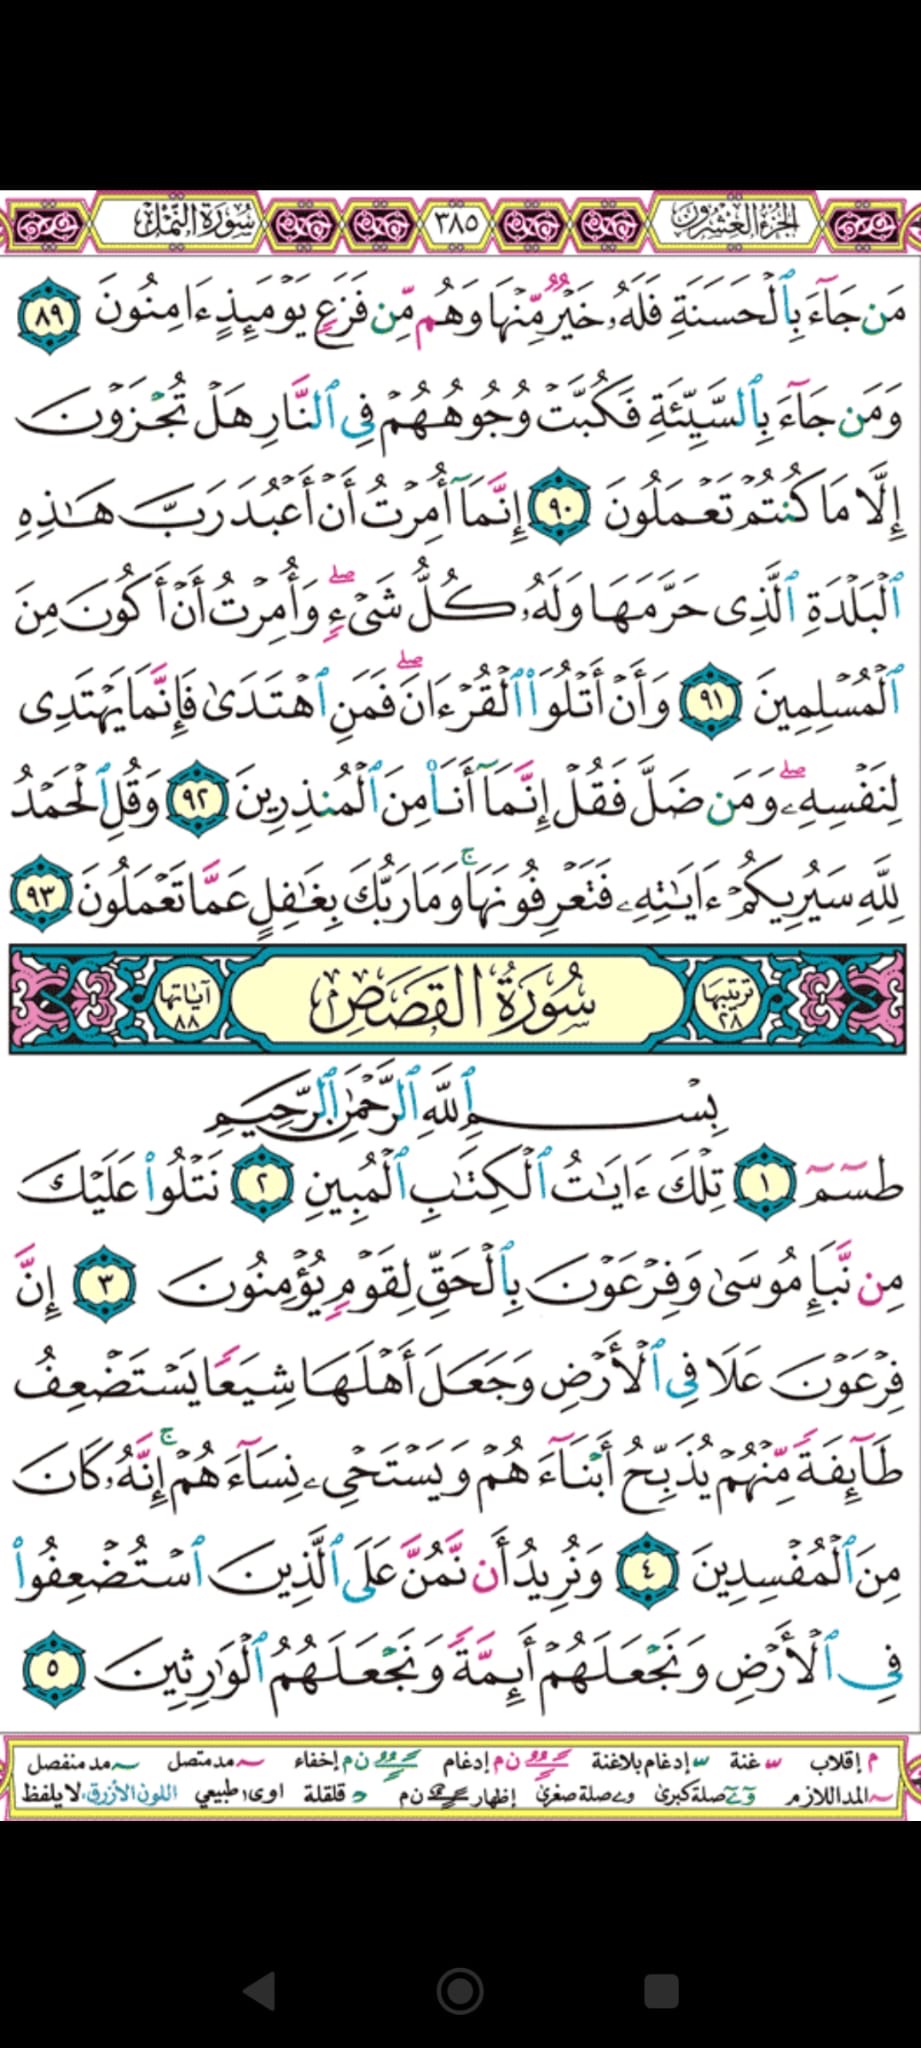 الجزء العشرون
٣٨٥
سورة النمل
مَن جَآءَ بِٱلْحَسَنَةِ فَلَهُۥ خَيْرٌ مِّنْهَا وَهُم مِّن فَزَعٍ يَوْمَئِذٍ ءَامِنُونَ ٨٩
وَمَن جَآءَ بِٱلسَّيِّئَةِ فَكُبَّتْ وُجُوهُهُمْ فِى ٱلنَّارِ هَلْ تُجْزَوْنَ
إِلَّا مَا كُنتُمْ تَعْمَلُونَ ٩٠ إِنَّمَآ أُمِرْتُ أَنْ أَعْبُدَ رَبَّ هَـٰذِهِ
ٱلْبَلْدَةِ ٱلَّذِى حَرَّمَهَا وَلَهُۥ كُلُّ شَىْءٍ ۖ وَأُمِرْتُ أَنْ أَكُونَ مِنَ
ٱلْمُسْلِمِينَ ٩١ وَأَنْ أَتْلُوَا۟ ٱلْقُرْءَانَ ۖ فَمَنِ ٱهْتَدَىٰ فَإِنَّمَا يَهْتَدِى
لِنَفْسِهِۦ ۖ وَمَن ضَلَّ فَقُلْ إِنَّمَآ أَنَا۠ مِنَ ٱلْمُنذِرِينَ ٩٢ وَقُلِ ٱلْحَمْدُ
لِلَّهِ سَيُرِيكُمْ ءَايَـٰتِهِۦ فَتَعْرِفُونَهَا ۚ وَمَا رَبُّكَ بِغَـٰفِلٍ عَمَّا تَعْمَلُونَ ٩٣
ترتيبها ٢٨
سُورَةُ القَصَصِ
آياتها ٨٨
بِسْمِ ٱللَّهِ ٱلرَّحْمَـٰنِ ٱلرَّحِيمِ
طسٓمٓ ١ تِلْكَ ءَايَـٰتُ ٱلْكِتَـٰبِ ٱلْمُبِينِ ٢ نَتْلُوا۟ عَلَيْكَ
مِن نَّبَإِ مُوسَىٰ وَفِرْعَوْنَ بِٱلْحَقِّ لِقَوْمٍ يُؤْمِنُونَ ٣ إِنَّ
فِرْعَوْنَ عَلَا فِى ٱلْأَرْضِ وَجَعَلَ أَهْلَهَا شِيَعًا يَسْتَضْعِفُ
طَآئِفَةً مِّنْهُمْ يُذَبِّحُ أَبْنَآءَهُمْ وَيَسْتَحْىِۦ نِسَآءَهُمْ ۚ إِنَّهُۥ كَانَ
مِنَ ٱلْمُفْسِدِينَ ٤ وَنُرِيدُ أَن نَّمُنَّ عَلَى ٱلَّذِينَ ٱسْتُضْعِفُوا۟
فِى ٱلْأَرْضِ وَنَجْعَلَهُمْ أَئِمَّةً وَنَجْعَلَهُمُ ٱلْوَٰرِثِينَ ٥
م إقلاب غنة إدغام بلاغنة ن م إدغام ن م إخفاء مد متصل مد منفصل
المد اللازم صلة كبرى صلة صغرى إظهار ن م قلقلة اوى طبيعي اللون الأزرق، لا يلفظ